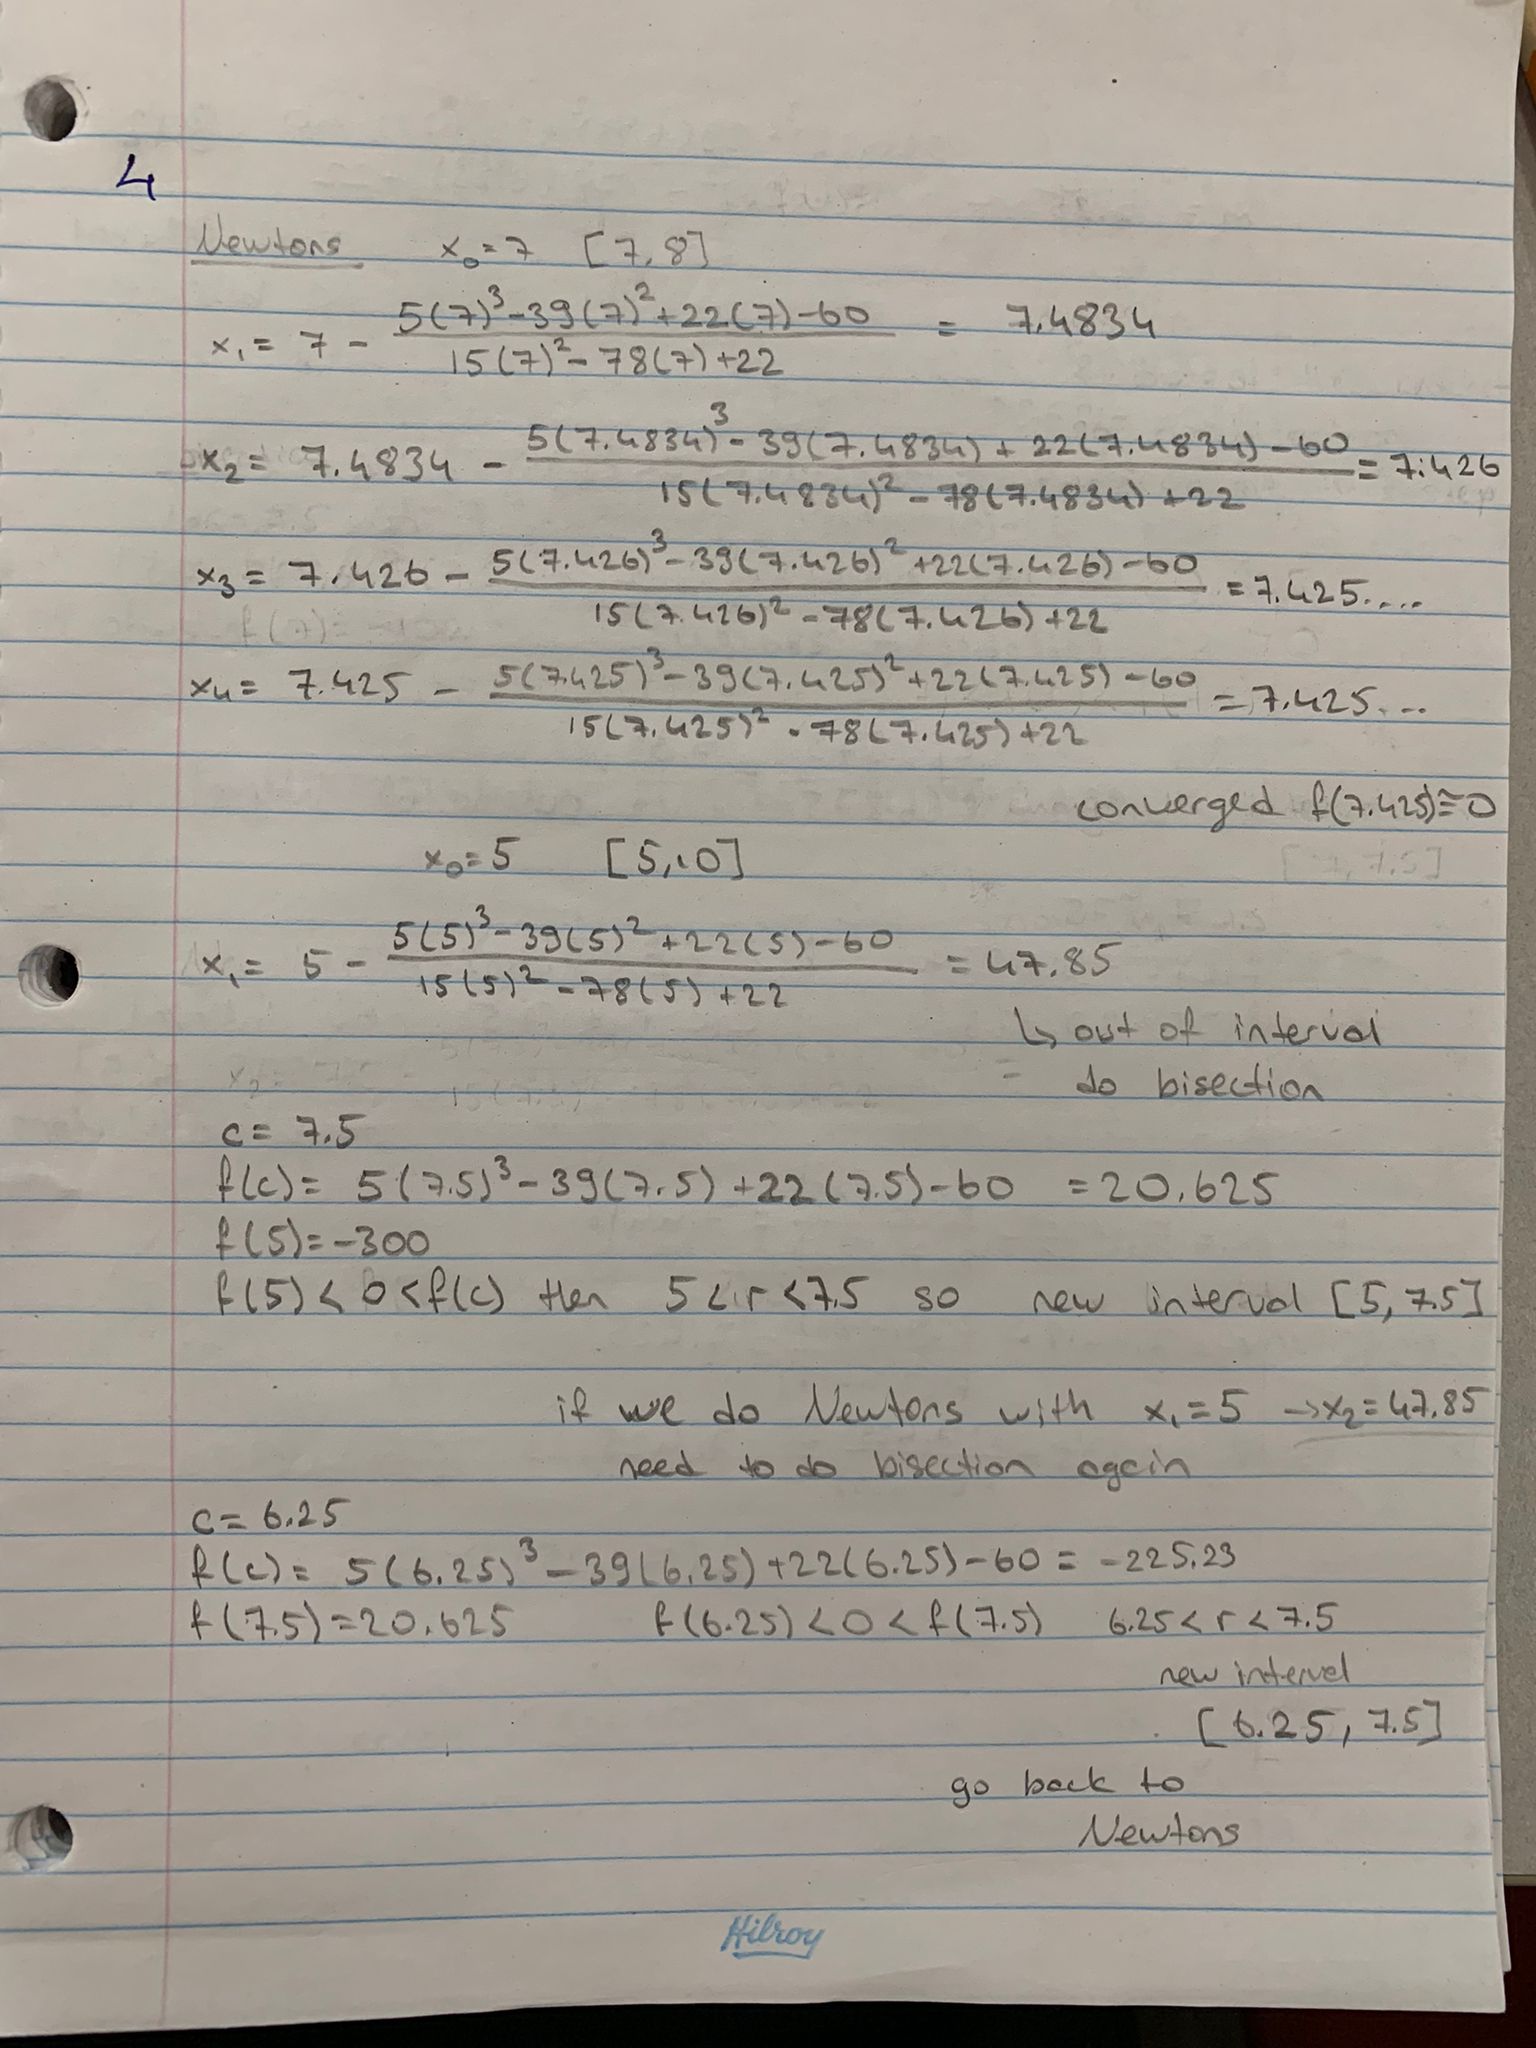 4
Newtons x₀=7 [7,8]
x₁ = 7 - (5(7)³-39(7)²+22(7)-60)/(15(7)²-78(7)+22) = 7.4834
x₂ = 7.4834 - (5(7.4834)³-39(7.4834)+22(7.4834)-60)/(15(7.4834)²-78(7.4834)+22) = 7.426
x₃ = 7.426 - (5(7.426)³-39(7.426)²+22(7.426)-60)/(15(7.426)²-78(7.426)+22) = 7.425....
x₄ = 7.425 - (5(7.425)³-39(7.425)²+22(7.425)-60)/(15(7.425)²-78(7.425)+22) = 7.425...
converged f(7.425)≅0
x₀=5 [5,10]
x₁ = 5 - (5(5)³-39(5)²+22(5)-60)/(15(5)²-78(5)+22) = 47.85
↳ out of interval
do bisection
c = 7.5
f(c) = 5(7.5)³-39(7.5)+22(7.5)-60 = 20.625
f(5)=-300
f(5)<0<f(c) then 5<r<7.5 so new interval [5,7.5]
if we do Newtons with x₁=5 →x₂=47.85
need to do bisection again
c = 6.25
f(c) = 5(6.25)³-39(6.25)+22(6.25)-60 = -225.23
f(7.5)=20.625 f(6.25)<0<f(7.5) 6.25<r<7.5
new interval
[6.25, 7.5]
go back to
Newtons
Hilroy